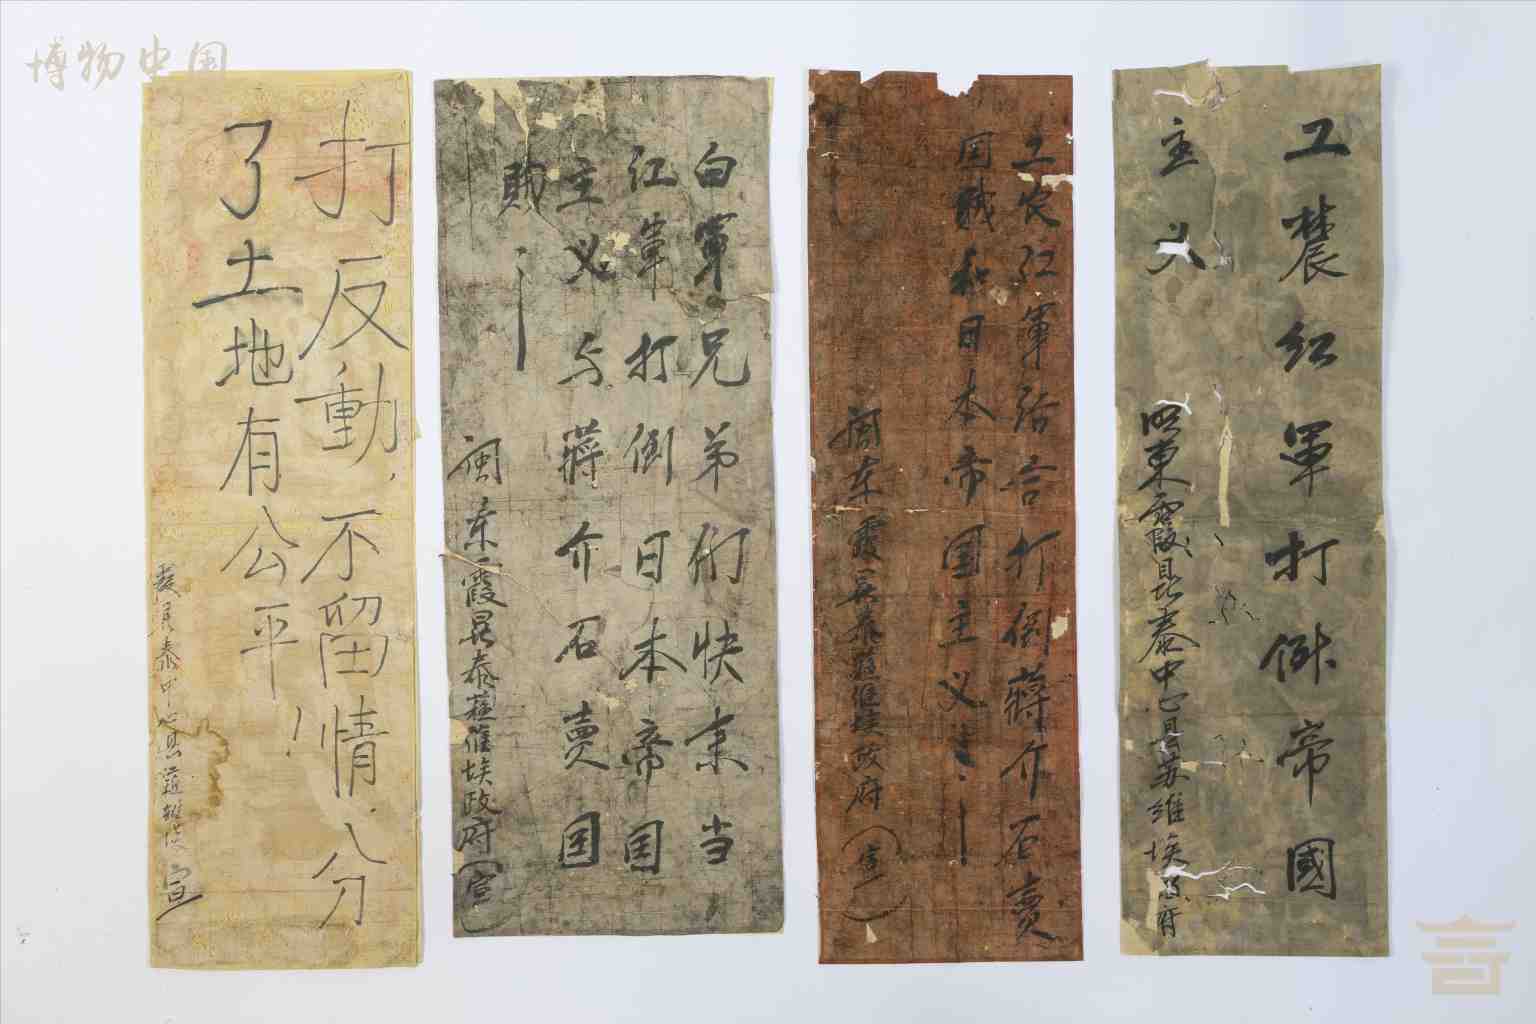 博物中国
工農红軍打倒帝國
主义
闽東霞鼎泰中心县苏維埃政府
工农红軍冶合打倒蔣介石賣
国賊和日本帝国主义！
闽东霞鼎泰蘓維埃政府（宣）
白軍兄弟们快来当
红軍打倒日本帝国
主义与蔣介石賣国
賊！
闽东霞鼎泰蘓維埃政府（宣）
打反動，不留情，分
了土地有公平！
霞鼎泰中心县蘓維埃宣